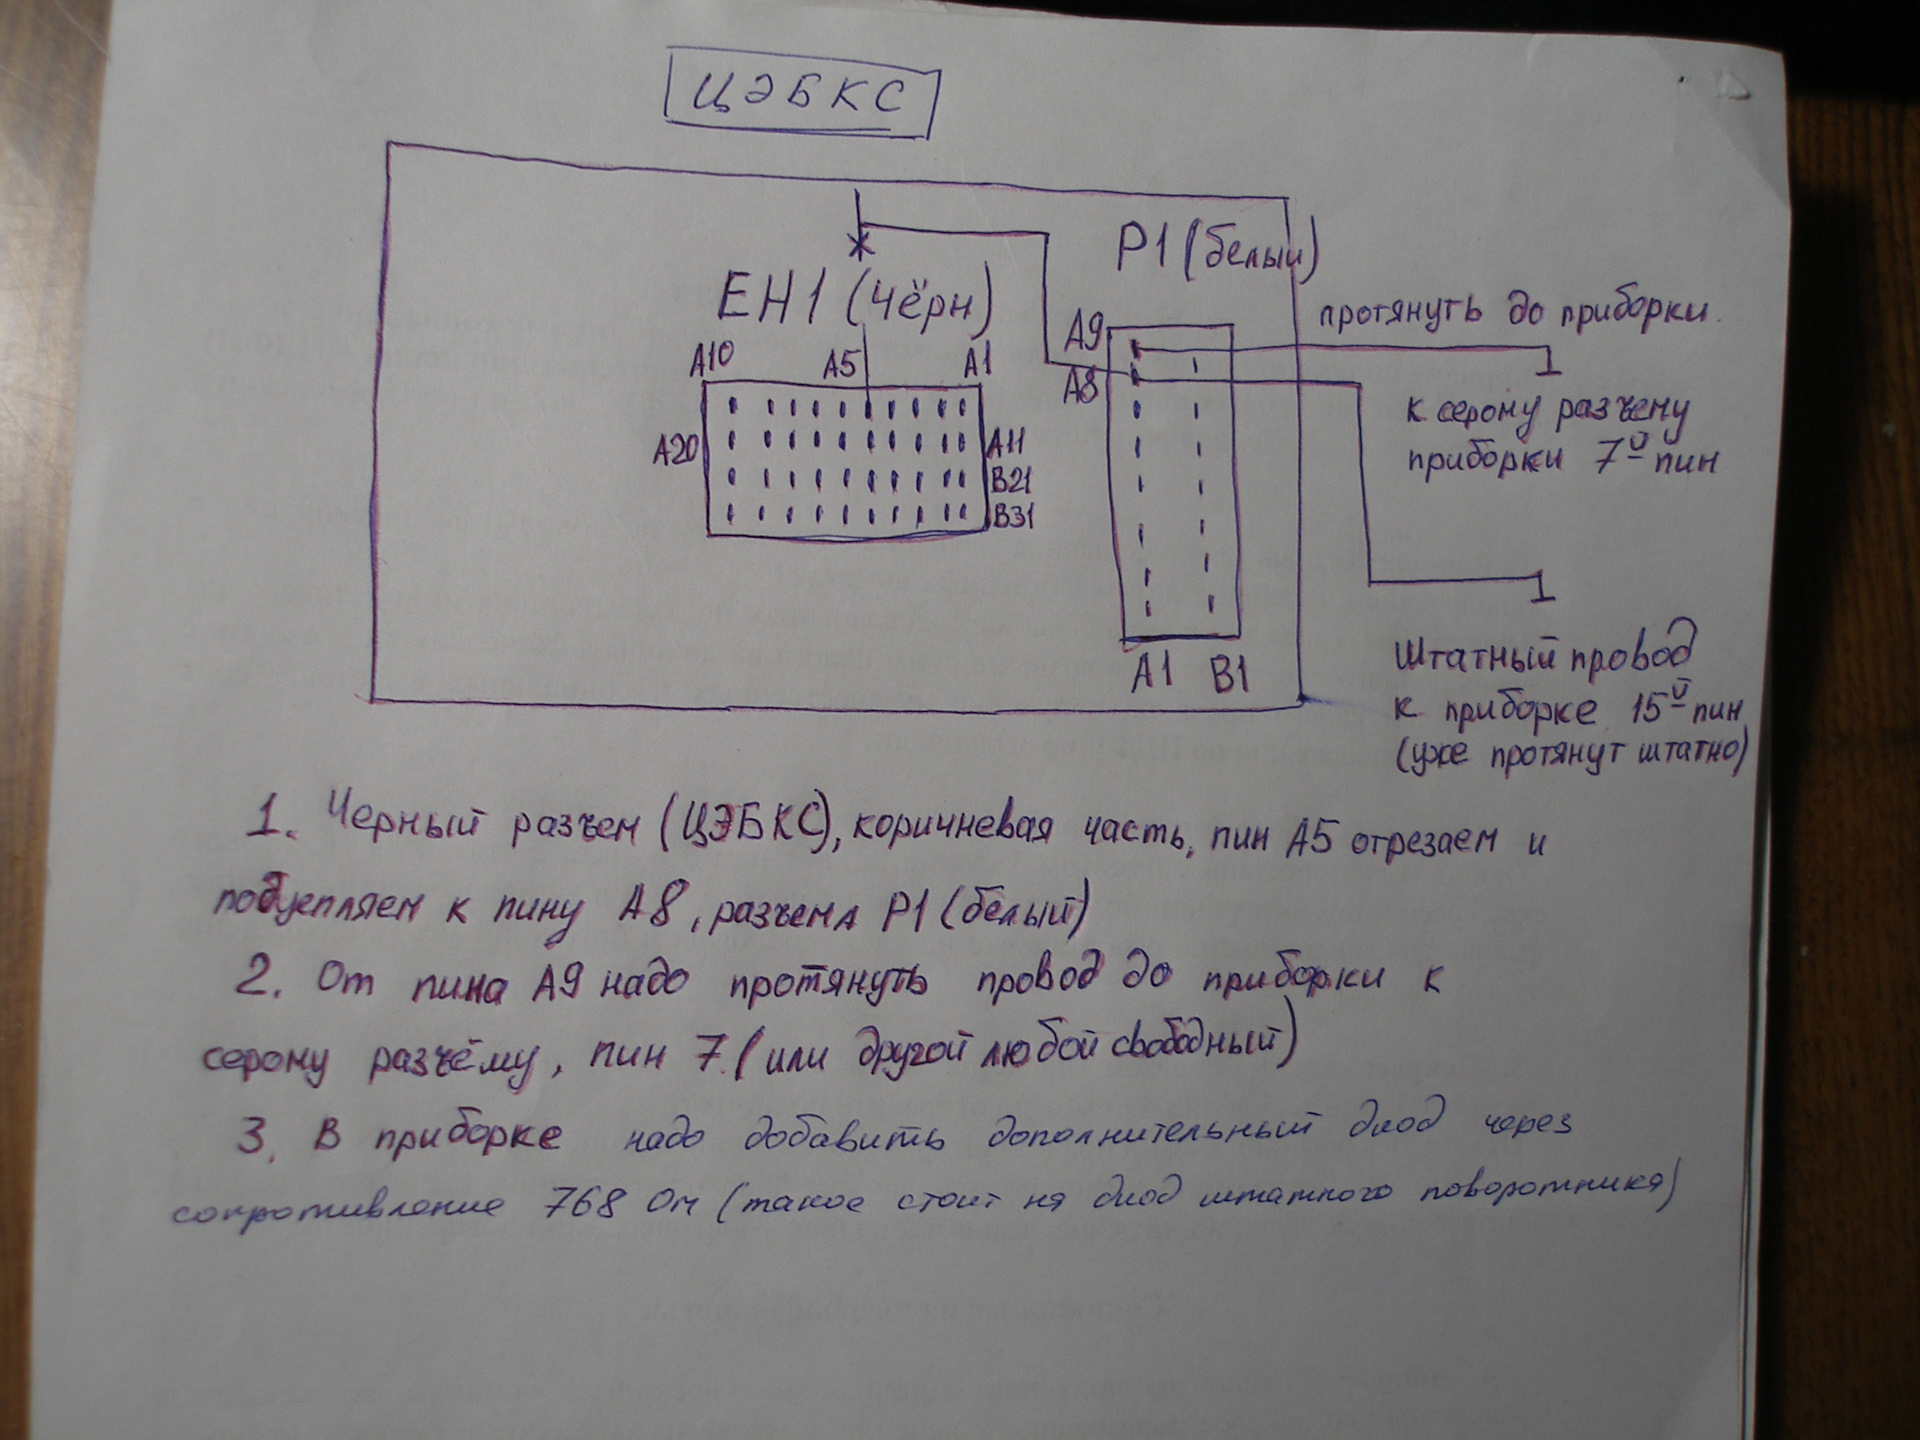 ЦЭБКС
P1 (белый)
EH1 (чёрн)
протянуть до приборки.
A10 A5 A1
A9
A8
к серому разъему
приборки 7й пин
A20 A11
B21
B31
A1 B1
Штатный провод
к приборке 15й пин
(уже протянут штатно)
1. Черный разъем (ЦЭБКС), коричневая часть, пин А5 отрезаем и
подцепляем к пину А8, разъема Р1 (белый)
2. От пина А9 надо протянуть провод до приборки к
серому разъёму, пин 7. (или другой любой свободный)
3. В приборке надо добавить дополнительный диод через
сопротивление 768 Ом (такое стоит на диод штатного поворотника)